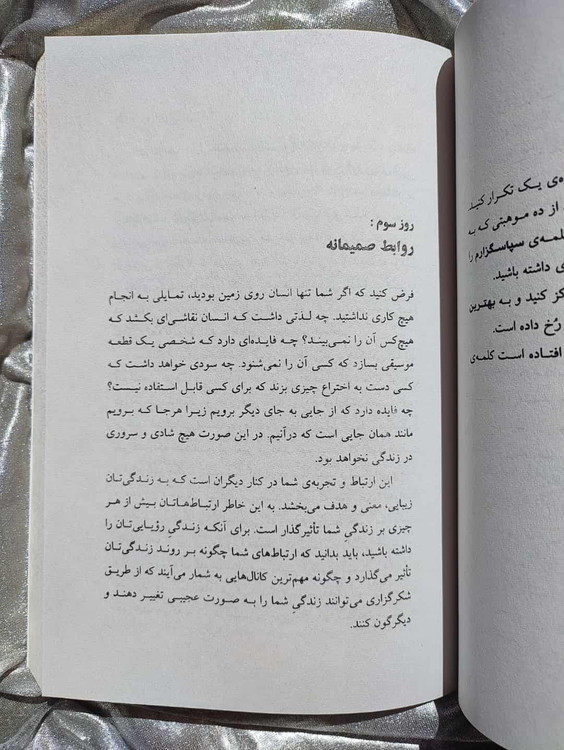 روز سوم :
روابط صمیمانه
فرض کنید که اگر شما تنها انسان روی زمین بودید، تمایلی به انجام
هیچ کاری نداشتید. چه لذتی داشت که انسان نقاشی‌ای بکشد که
هیچ‌کس آن را نمی‌بیند؟ چه فایده‌ای دارد که شخصی یک قطعه
موسیقی بسازد که کسی آن را نمی‌شنود. چه سودی خواهد داشت که
کسی دست به اختراع چیزی بزند که برای کسی قابل استفاده نیست؟
چه فایده دارد که از جایی به جای دیگر برویم زیرا هرجا که برویم
مانند همان جایی است که درآنیم. در این صورت هیچ شادی و سروری
در زندگی نخواهد بود.
این ارتباط و تجربه‌ی شما در کنار دیگران است که به زندگی‌تان
زیبایی، معنی و هدف می‌بخشد. به این خاطر ارتباط‌هاتان بیش از هر
چیزی بر زندگیِ شما تأثیرگذار است. برای آنکه زندگیِ رؤیایی‌تان را
داشته باشید، باید بدانید که ارتباط‌های شما چگونه بر روند زندگی‌تان
تأثیر می‌گذارد و چگونه مهم‌ترین کانال‌هایی به شمار می‌آیند که از طریق
شکرگزاری می‌توانند زندگیِ شما را به صورت عجیبی تغییر دهند و
دیگرگون کنند.
ی یک تکرار کنید
از ده موهبتی که به
لمه‌ی سپاسگزارم را
ی داشته باشید.
کز کنید و به بهترین
رُخ داده است.
افتاده است کلمه‌ی